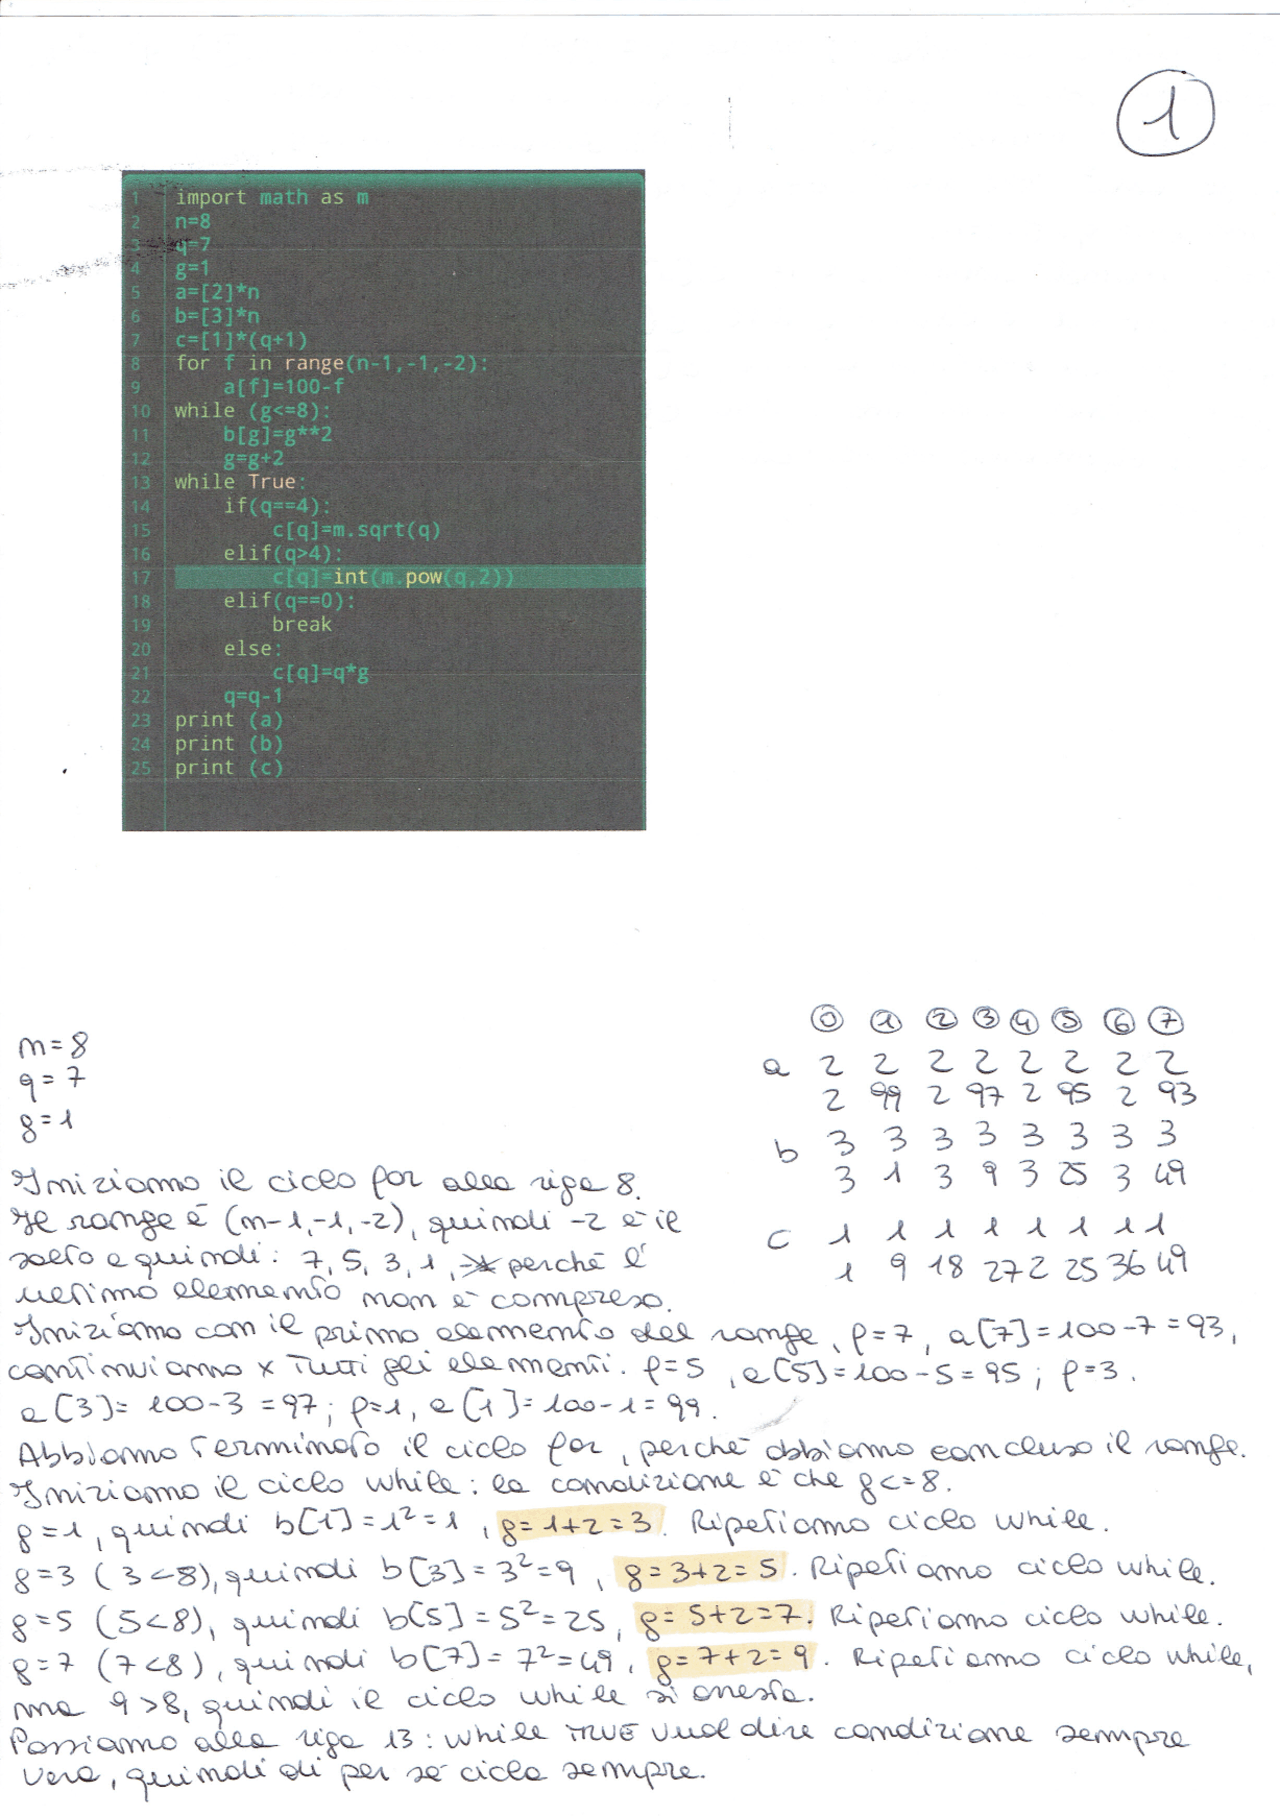 1
1 import math as m
2 n=8
3 q=7
4 g=1
5 a=[2]*n
6 b=[3]*n
7 c=[1]*(q+1)
8 for f in range(n-1,-1,-2):
9 a[f]=100-f
10 while (g<=8):
11 b[g]=g**2
12 g=g+2
13 while True:
14 if(q==4):
15 c[q]=m.sqrt(q)
16 elif(q>4):
17 c[q]=int(m.pow(q,2))
18 elif(q==0):
19 break
20 else:
21 c[q]=q*g
22 q=q-1
23 print (a)
24 print (b)
25 print (c)
n=8
q=7
g=1
0 1 2 3 4 5 6 7
a 2 2 2 2 2 2 2 2
2 99 2 97 2 95 2 93
b 3 3 3 3 3 3 3 3
3 1 3 9 3 25 3 49
c 1 1 1 1 1 1 1 1
1 9 18 27 2 25 36 49
Iniziamo il ciclo for alla riga 8.
Il range è (n-1,-1,-2), quindi -2 è il
salto e quindi: 7, 5, 3, 1, perché l'
ultimo elemento non è compreso.
Iniziamo con il primo elemento del range, f=7, a[7]=100-7=93,
continuiamo x tutti gli elementi. f=5, a[5]=100-5=95; f=3.
a[3]=100-3=97; f=1, a[1]=100-1=99.
Abbiamo terminato il ciclo for, perché abbiamo concluso il range.
Iniziamo il ciclo while: la condizione è che g<=8.
g=1, quindi b[1]=1²=1, g=1+2=3. Ripetiamo ciclo while.
g=3 (3<8), quindi b[3]=3²=9, g=3+2=5. Ripetiamo ciclo while.
g=5 (5<8), quindi b[5]=5²=25, g=5+2=7. Ripetiamo ciclo while.
g=7 (7<8), quindi b[7]=7²=49, g=7+2=9. Ripetiamo ciclo while,
ma 9>8, quindi il ciclo while si arresta.
Passiamo alla riga 13: while TRUE vuol dire condizione sempre
vera, quindi di per sé cicla sempre.